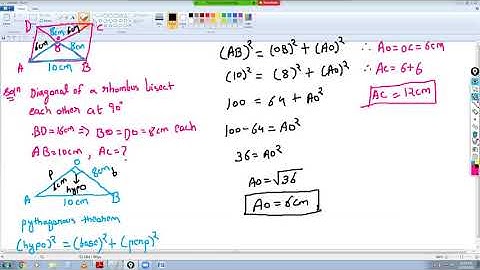 D C
8cm 6cm
6cm 8cm
O
A B
10cm
Soln Diagonal of a rhombus bisect
each other at 90°
BD=16cm ⇒ BO=DO=8cm each
AB=10cm, AC=?
O
P 8cm b
6cm
hypo
A B
10cm
pythagoras theorem
(hypo)² = (base)² + (perp)²
(AB)² = (OB)² + (AO)²
(10)² = (8)² + (AO)²
100 = 64 + AO²
100-64 = AO²
36 = AO²
AO = √36
AO = 6cm
∴ AO = OC = 6cm
∴ AC = 6+6
AC = 12cm